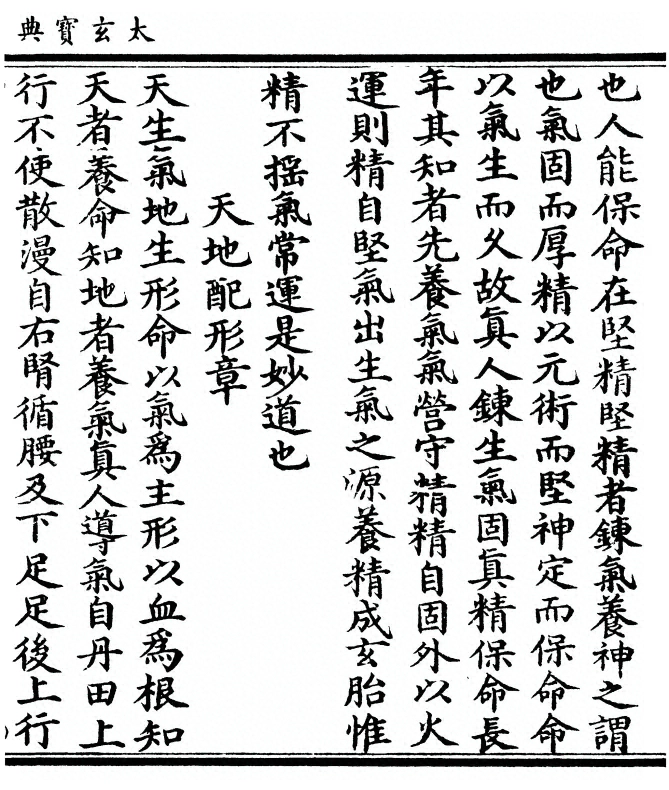 太玄寶典
也人能保命在堅精堅精者鍊氣養神之謂
也氣固而厚精以元術而堅神定而保命命
以氣生而久故眞人鍊生氣固眞精保命長
年其知者先養氣氣營守精精自固外以火
運則精自堅氣出生氣之源養精成玄胎惟
精不揺氣常運是妙道也
天地配形章
天生氣地生形命以氣爲主形以血爲根知
天者養命知地者養氣眞人導氣自丹田上
行不使散漫自右腎循腰及下足足後上行